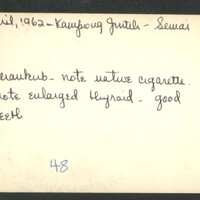 ril, 1962 - Kampong - Semai
note native cigarette.
ote enlarged thyroid - good
eeth
48